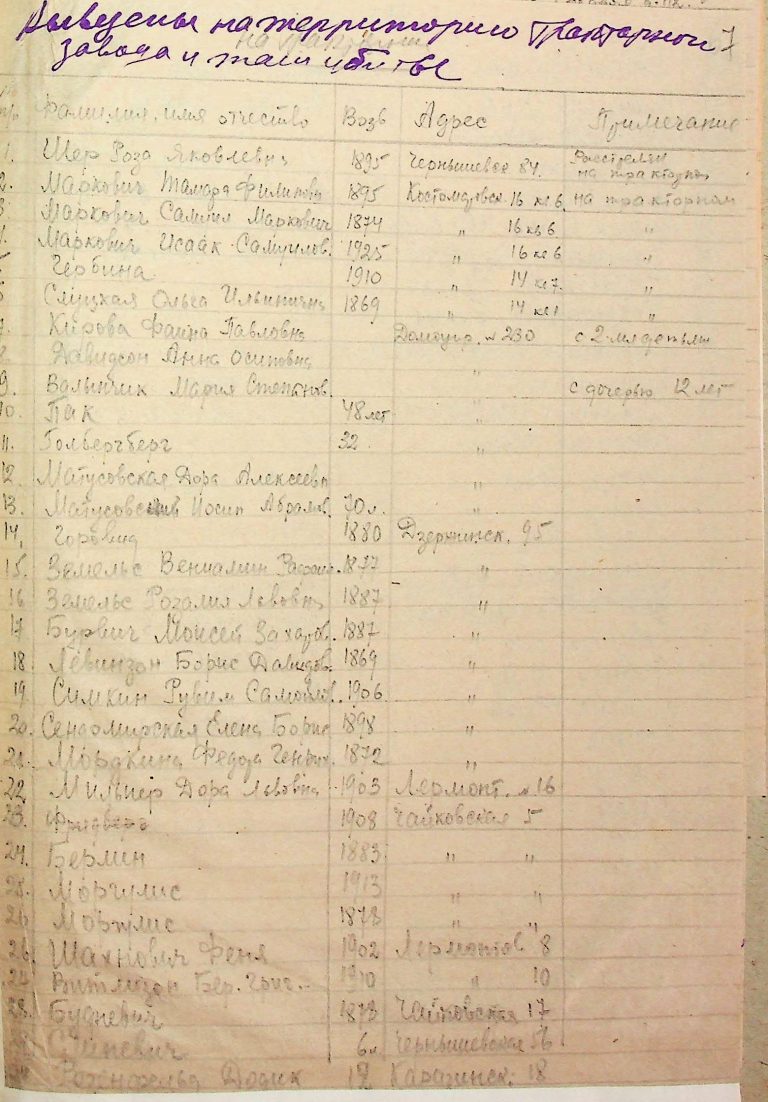 Выведены на территорию Тракторной 7
завода и там убиты
Фамилия, имя отчество Возв Адрес Примечание
1. Шер Роза Яковлевн 1895 Чернышевск 84. Расстрелян
на тракторн
2. Маркович Тамара Филипповн 1895 Костомаровск. 16 кв 6. на тракторном
3 Маркович Самуил Маркович 1874 " 16 кв 6 "
Маркович Исаак Самуилов. 1925 " 16 кв 6 "
Гербина 1910 " 14 кв 7. "
Слуцкая Ольга Ильинична 1869 " 14 кв "
7. Кирова Фаина Павловн Домоупр. № 230 с 2 мя детьми
8 Давидсон Анна Осиповна "
9. Вальпчик Мария Степанов. с дочерью 12 лет
10. Пак 48 лет "
11. Гольбергберг 32 "
12. Матусовская Дора Алексеевн "
13. Матусовский Иосип Абрамов. 70 л. "
14. Горовид 1880 Дзержинск. 95
15. Земельс Вениамин 1877 "
16 Земельс Розалия Лововна 1887 "
17 Бурвич Моисей Захаров. 1887 "
18 Левинзон Борис Давидов. 1869 "
19. Симкин Рувим Самойлов. 1906 "
20. Сендомирская Елена Борис 1898 "
21. Мордкина Федора Генрих. 1872 "
22. Мильнер Дора Лововна 1903 Лермонт. № 16
23. 1908 Чайковская 5
24. Берлин 1883 " "
25. Моргулис 1913 " "
26 Моргулис 1873 " "
26. Шахнович Феня 1902 Лермонтов 8
Витлизон Бер. Григ. 1910 " 10
28. Будневич 1873 Чайковская 17
6 л Чернышевская 56
Розенфельд Додик 17 Каразинск. 18